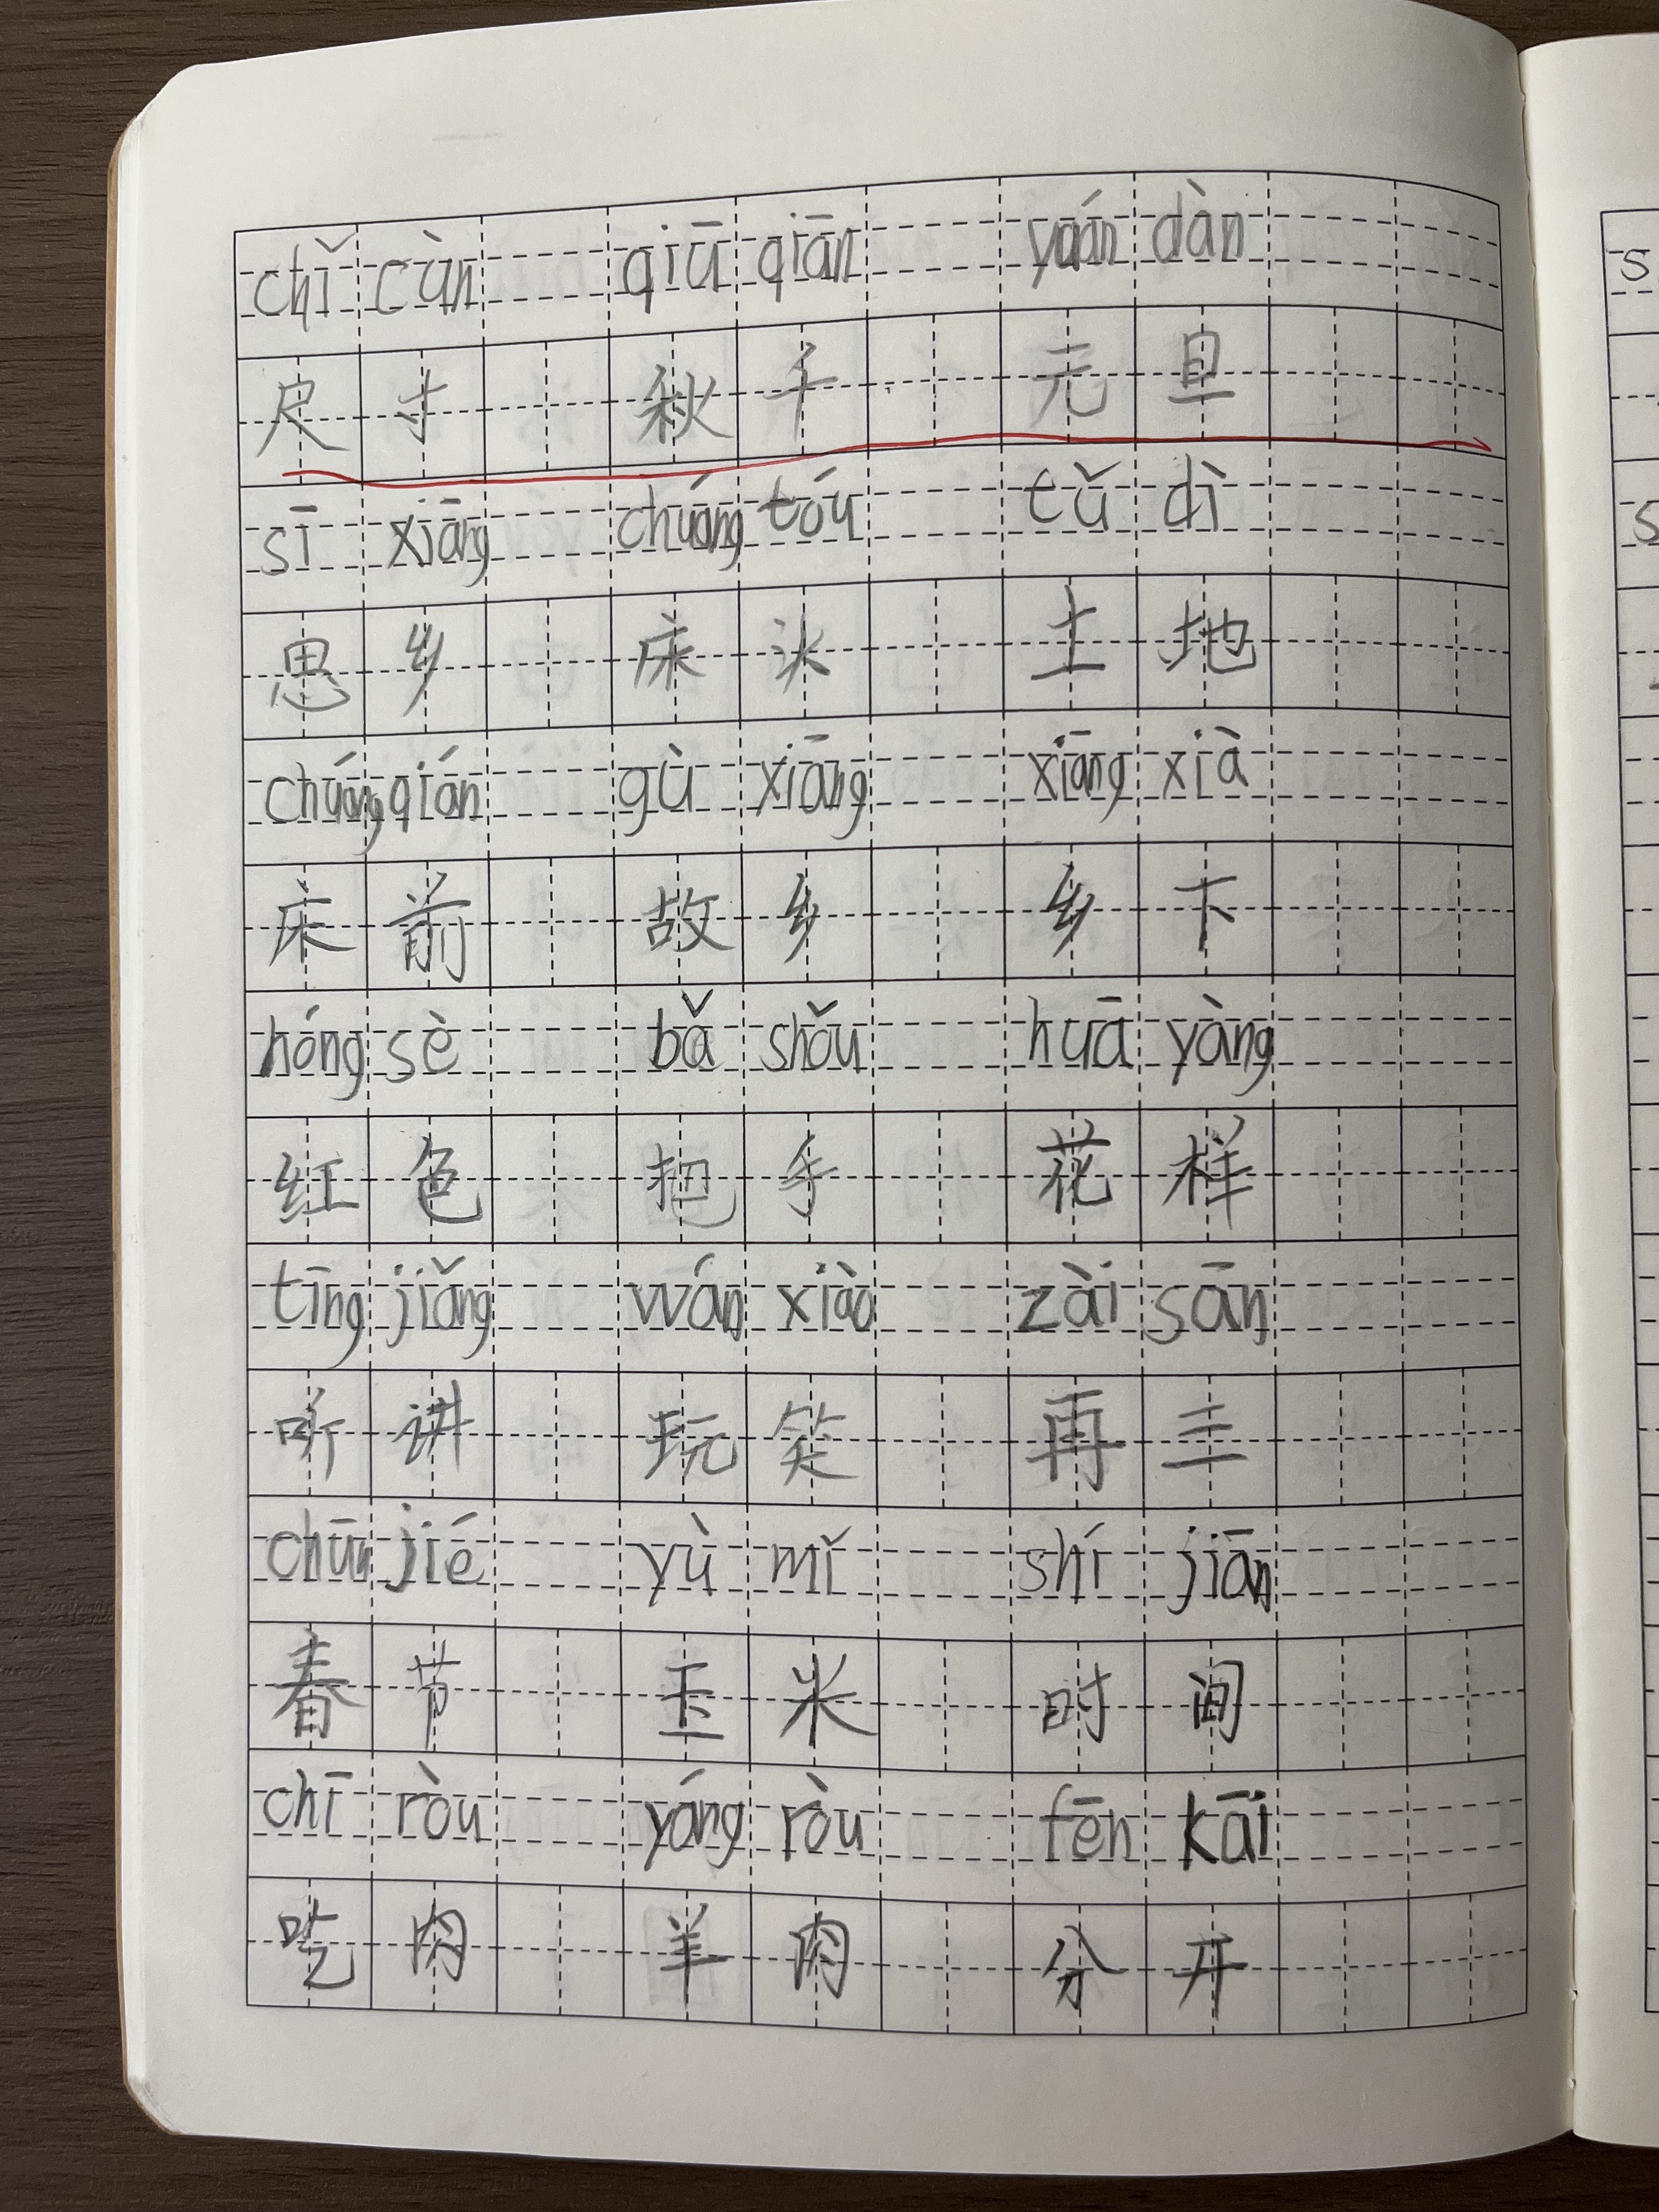 chǐ cùn qiū qiān yuán dàn
尺 寸 秋 千 元 旦
sī xiāng chuáng tóu tǔ dì
思 乡 床 头 土 地
chuáng qián gù xiāng xiāng xià
床 前 故 乡 乡 下
hóng sè bǎ shǒu huā yàng
红 色 把 手 花 样
tīng jiǎng wán xiào zài sān
听 讲 玩 笑 再 三
chūn jié yù mǐ shí jiān
春 节 玉 米 时 间
chī ròu yáng ròu fēn kāi
吃 肉 羊 肉 分 开